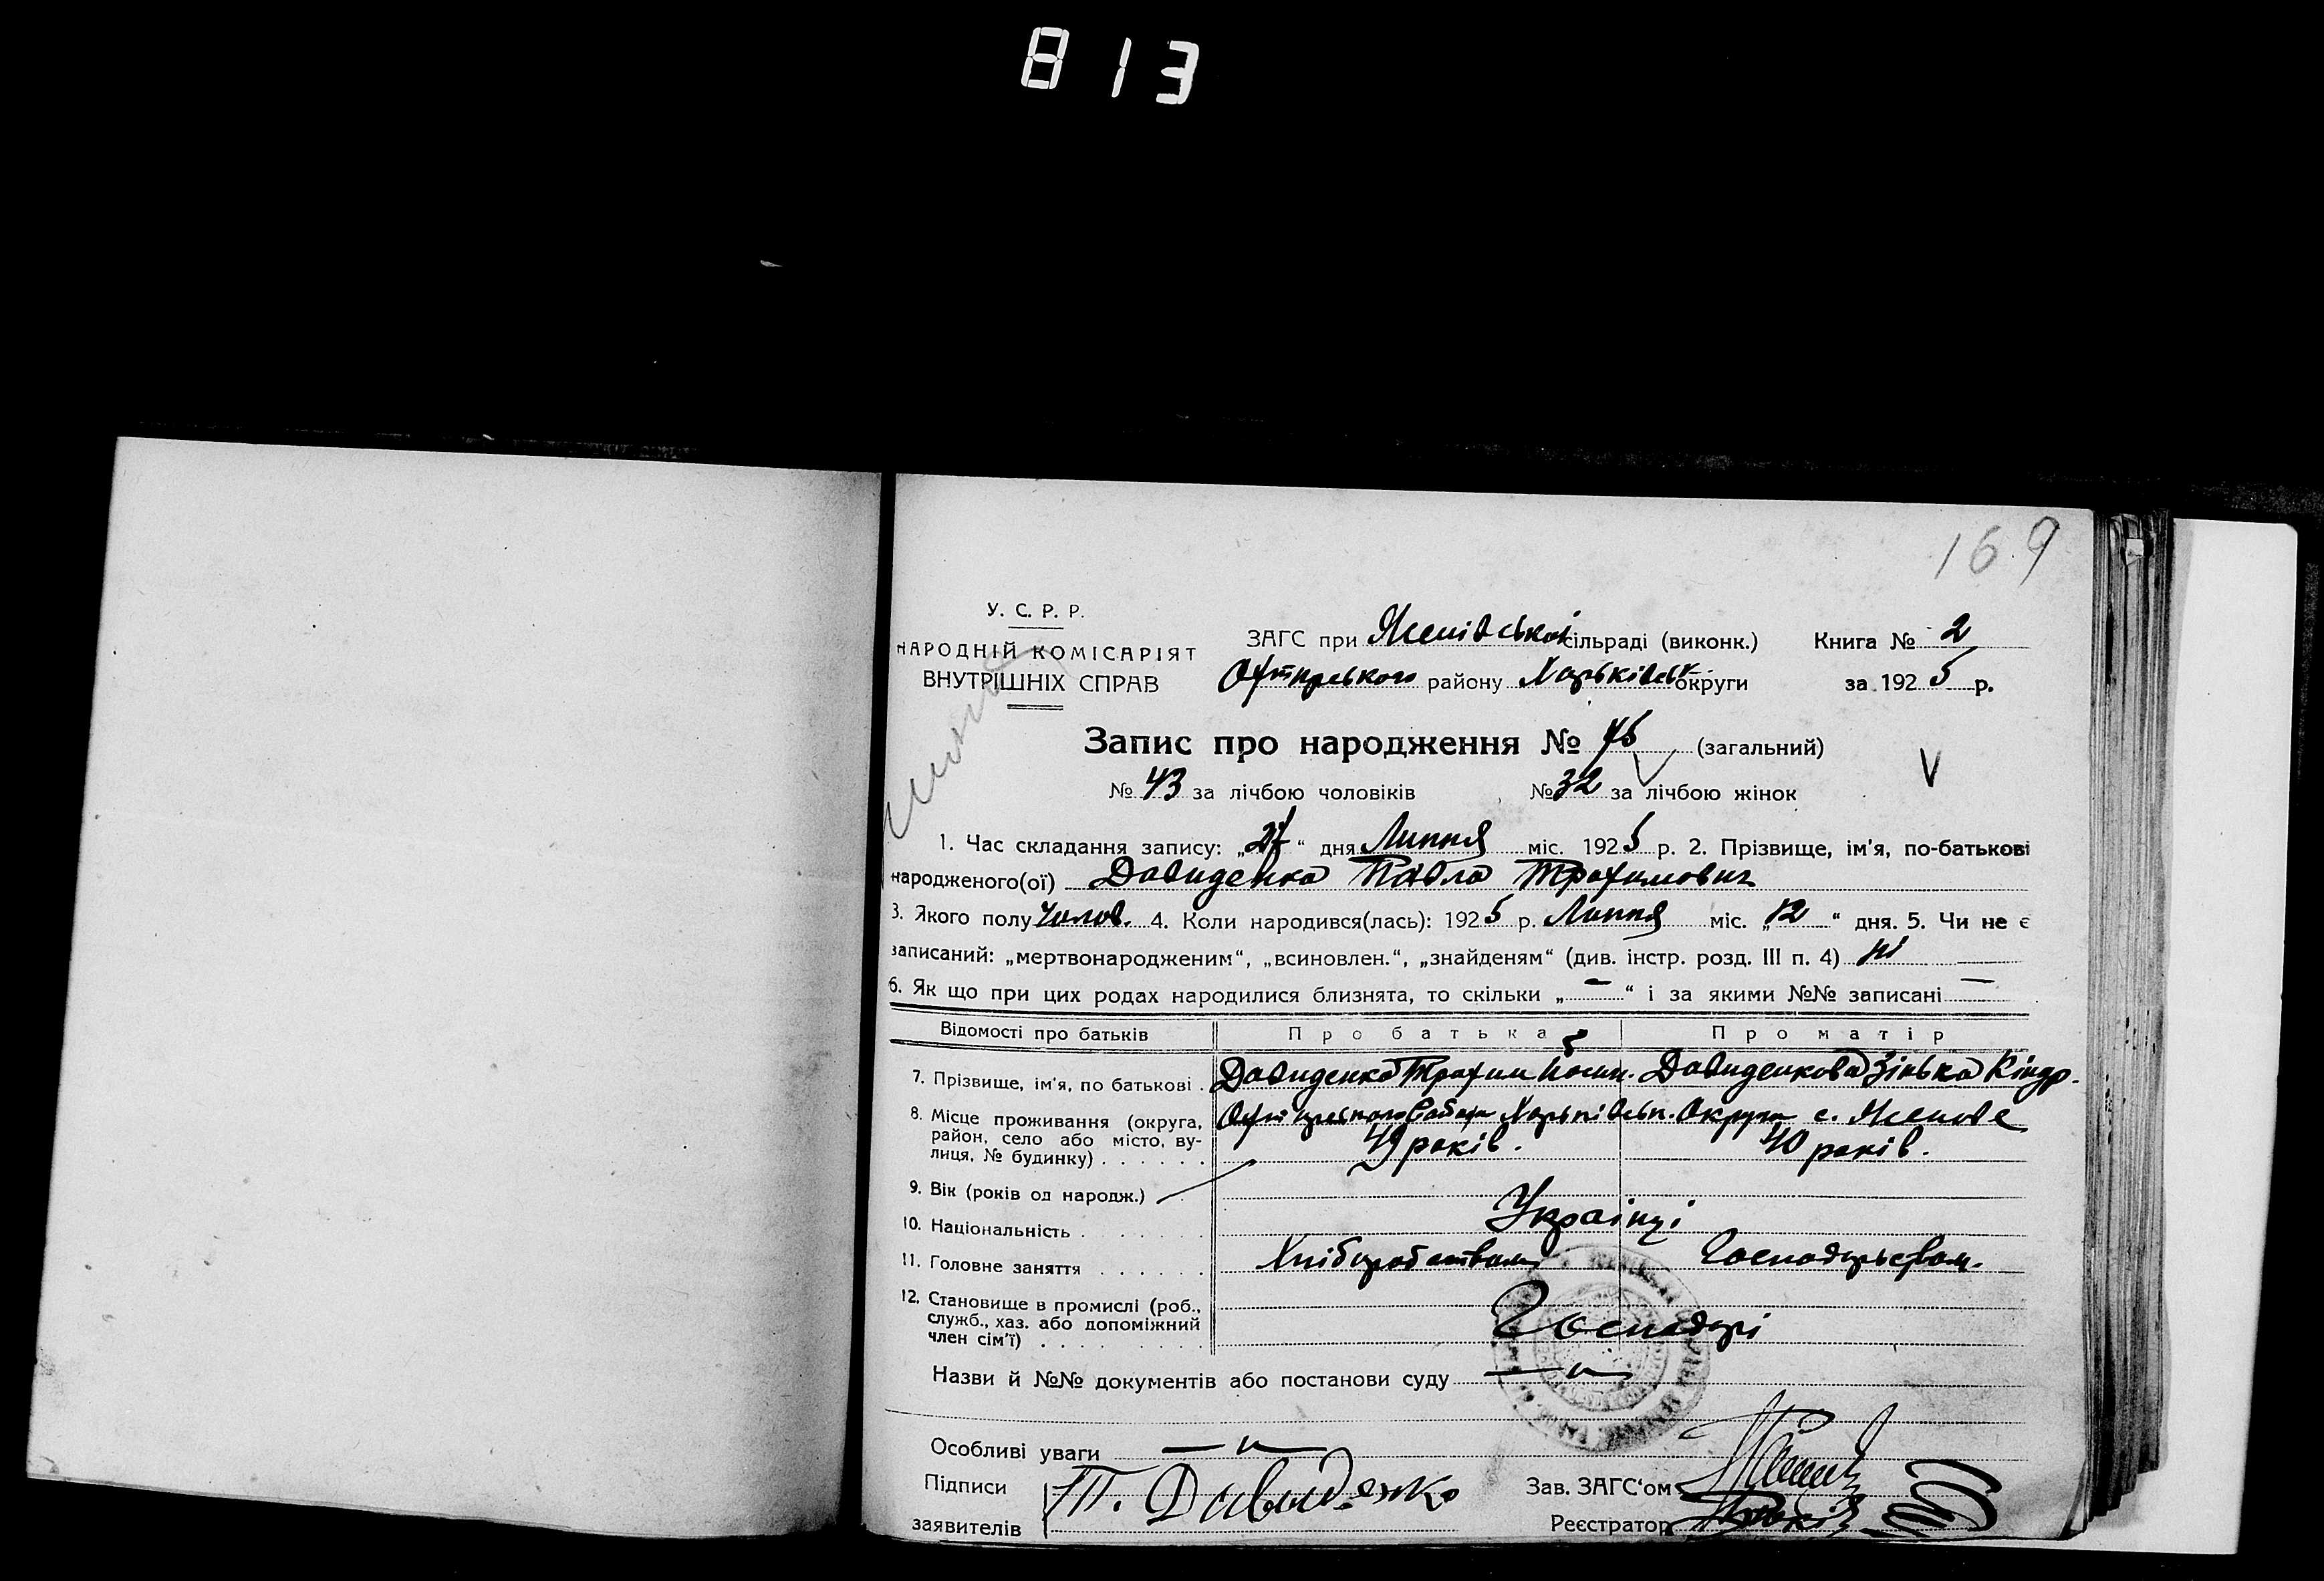 813
169
У. С. Р. Р.
НАРОДНІЙ КОМІСАРІЯТ
ВНУТРІШНІХ СПРАВ
ЗАГС при Ясенівській сільраді (виконк.) Книга № 2
Охтирського району Харьківськ. округи за 1925 р.
Запис про народження № 75 (загальний)
V
№ 43 за лічбою чоловіків № 32 за лічбою жінок
1. Час складання запису: „27“ дня Липня міс. 1925 р. 2. Прізвище, ім'я, по-батькові
народженого(ої) Давиденко Павло Трохимович
3. Якого полу Чолов. 4. Коли народився(лась): 1925 р. Липня міс. „12“ дня. 5. Чи не є
записаний: „мертвонародженим“, „всиновлен.“, „знайденям“ (див. інстр. розд. III п. 4) ні
6. Як що при цих родах народилися близнята, то скільки „—“ і за якими №№ записані —
Відомості про батьків Про батька Про матір
7. Прізвище, ім'я, по батькові . Давиденко Трохим Йосип. Давиденкова Зінька Кіндр.
8. Місце проживання (округа, район, село або місто, вулиця, № будинку) . . . . . . Охтирського Району Харьківськ. Округи с. Ясенове
49 років. 40 років.
9. Вік (років од народж.)
10. Національність . . . . . . . Українці
11. Головне заняття . . . . . . Хліборобством Господарством.
12. Становище в промислі (роб., служб., хаз. або допоміжний член сім'ї) . . . . . . . . Господарі
Назви й №№ документів або постанови суду — „ —
Особливі уваги — „ —
Підписи
заявителів
Т. Давиденко
Зав. ЗАГС'ом
Реєстратор